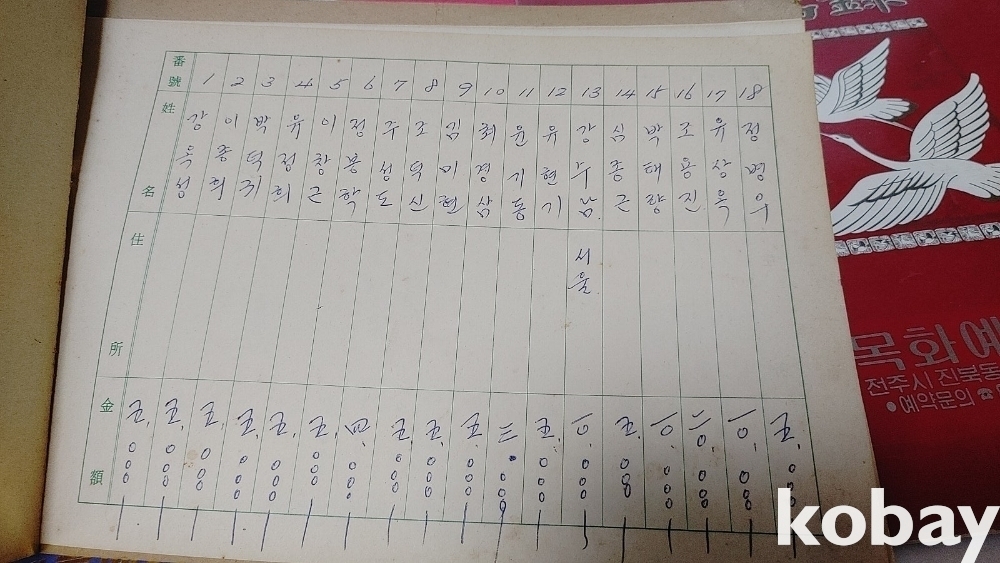 番號 姓名 住所 金額
1 강옥성 五,000
2 이종희 五,000
3 박덕 五,000
4 유정희 五,000
5 이창근 五,000
6 정봉학 五,000
7 주성도 四,000
8 조덕신 五,000
9 김미현 五,000
10 최경삼 五,000
11 윤기동 三,000
12 유현기 五,000
13 강수남 서울 一0,000
14 심종근 五,000
15 박태랑 一0,000
16 조용진 二0,000
17 유상옥 一0,000
18 정병우 五,000
목화예
전주시 진북동
●예약문의 ☎
kobay